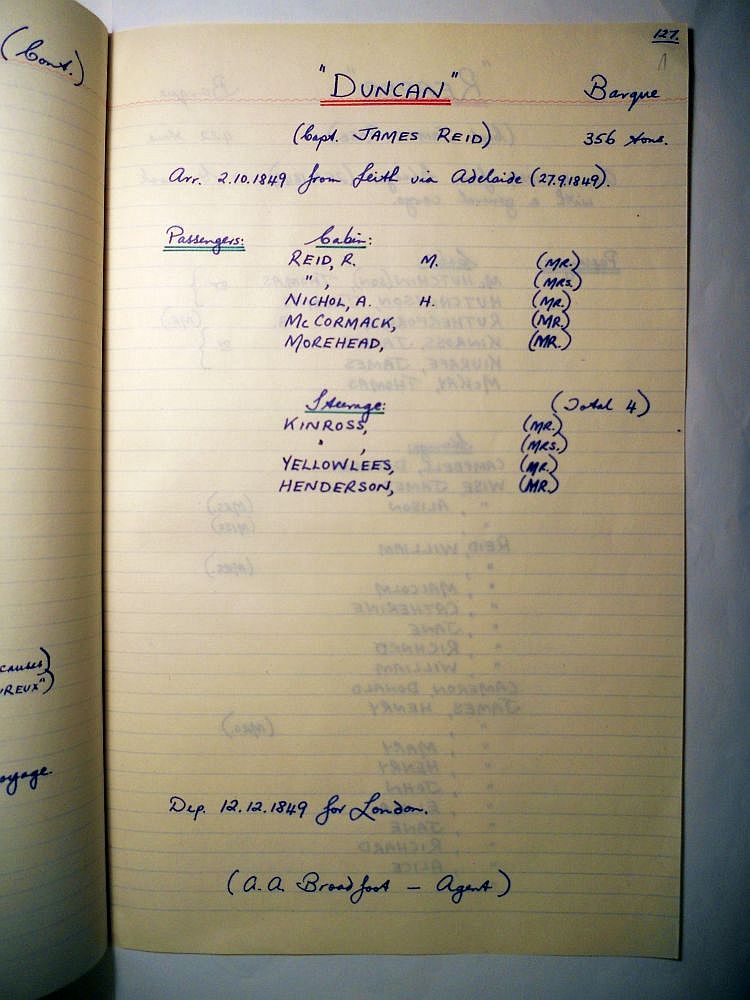 (Cont.)
127.
"DUNCAN" Barque
(Capt. JAMES REID) 356 tons.
Arr. 2.10.1849 from Leith via Adelaide (27.9.1849).
Passengers: Cabin:
REID, R. M. (MR.)
" , (MRS.)
NICHOL, A. H. (MR.)
McCORMACK, (MR.)
MOREHEAD, (MR.)
Steerage: (Total 4)
KINROSS, (MR.)
" , (MRS.)
YELLOWLEES, (MR.)
HENDERSON, (MR.)
causes)
REUX")
oyage.
Dep. 12.12.1849 for London.
(A.A. Broadfoot - Agent)